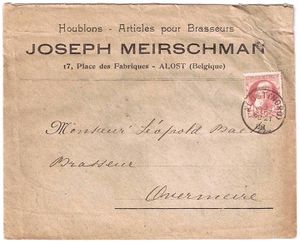 Houblons - Articles pour Brasseurs
JOSEPH MEIRSCHMAN
17, Place des Fabriques - ALOST (Belgique)
Monsieur Léopold
Brasseur
Overmeire